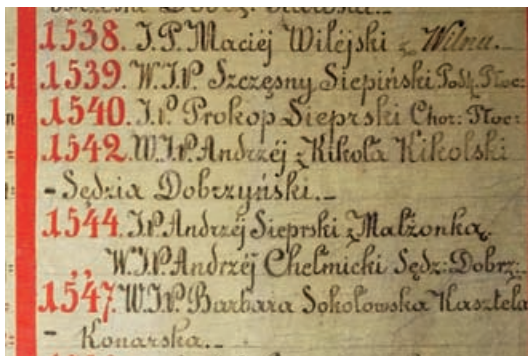 1538. J.P. Maciéj Wiléjski z Wilna.
1539. W.J.P. Szczęsny Siepiński Podk. Płoc:
1540. J.P. Prokop Sieprski Chor: Płoc:
1542. W.J.P. Andrzéj z Kikoła Kikolski
- Sędzia Dobrzyński. _
1544. J.P. Andrzéj Sieprski z Małżonką.
,, W.J.P. Andrzéj Chełmicki Sędz: Dobrz:
1547. W.J.P. Barbara Sokołowska Kasztela
- Konarska. _